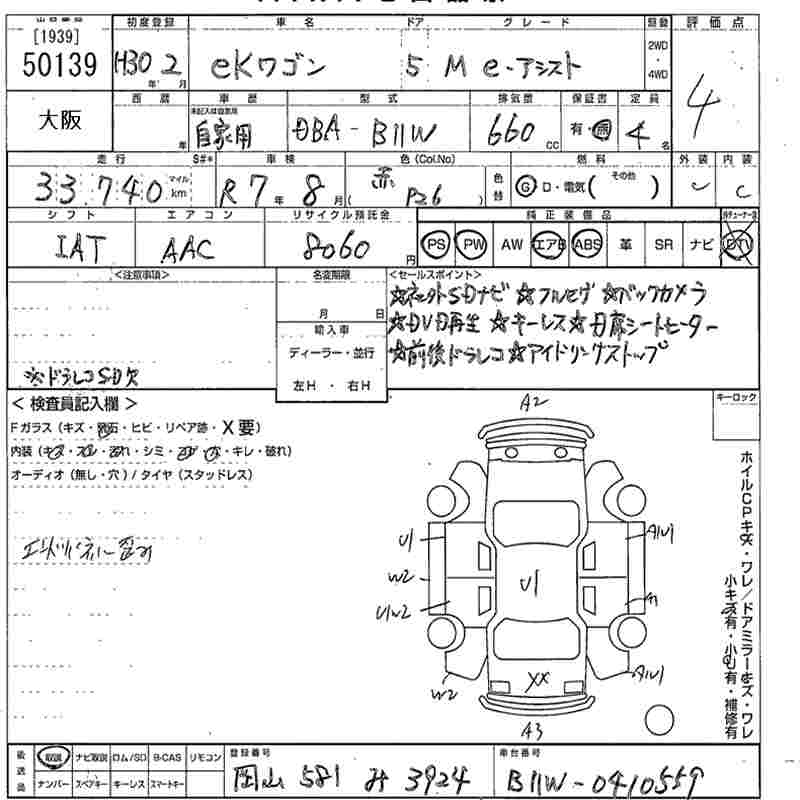 [1939]
50139
大阪
初度登録 車名 ドア グレード 評価点
H30 2 eKワゴン 5 M e-アシスト 2WD・4WD 4
年 月
西暦 車歴 型式 排気量 保証書 定員
年 自家用 DBA-B11W 660 cc 有・無 4 名
走行 S#* 車検 色(Col.No) 燃料 外装 内装
33.740 マイル km R7年 8月 赤 (P26) 色替 G・D・電気( その他 ) C
シフト エアコン リサイクル預託金 純正装備品
IAT AAC 8060 円 PS PW AW エアB ABS 革 SR ナビ DTV
<注意事項> 名変期限 <セールスポイント>
月 日
☆ネット外SDナビ☆フルセグ☆バックカメラ
☆DVD再生☆キーレス☆D席シートヒーター
☆前後ドラレコ☆アイドリングストップ
輸入車
ディーラー・並行
左H・右H
※ドラレコSD欠
＜検査員記入欄＞
キーロック
Fガラス(キズ・飛石・ヒビ・リペア跡・X要)
内装(キズ・スレ・汚れ・シミ・コゲ・穴・キレ・破れ)
オーディオ(無し・穴)/タイヤ(スタッドレス)
A2
U1
W2
U1W2
W2
U1
A1U1
A1
A1U1
XX
A3
ホイルCPキズ・ワレ/ドアミラーキズ・ワレ
小キズ有・小U有・補修有
後送品 取説 ナビ取説 ロム/SD B-CAS リモコン
ナンバー スペアキー キーレス スマートキー
登録番号
岡山 581 み 3924
車台番号
B11W-0410559